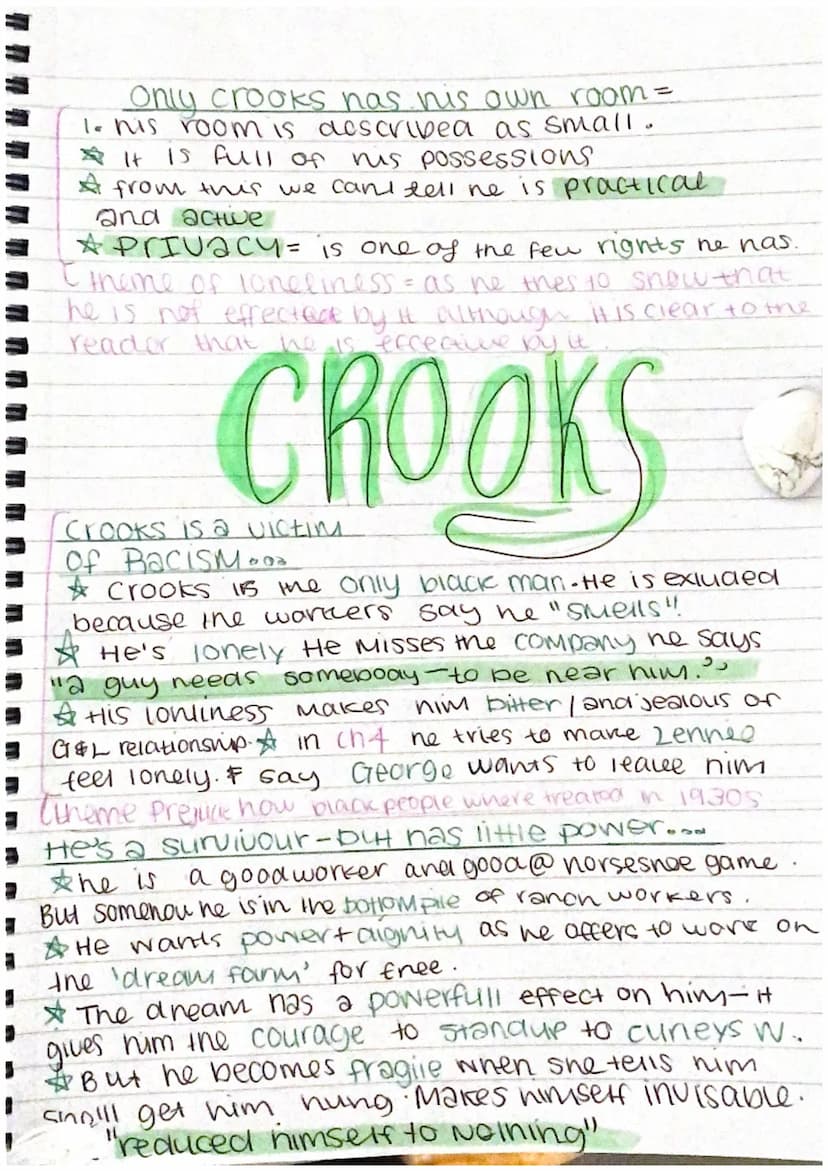 Only crooks has his own room =
1. his room is described as small.
☆ It is full of his possessions
☆ from this we cant tell he is practical
and active
☆ PRIVACY = is one of the few rights he has.
[ theme of loneliness = as he tries to show that
he is not effected by it although it is clear to the
reader that he is effective by it.
CROOKS
Crooks is a victim
of Racism....
☆ Crooks is the only black man. He is exluded
because the workers say he "smells"!
☆ He's lonely He Misses the company he says
"a guy needs somebody - to be near him."
☆ His lonliness makes him bitter / and jealous of
G&L relationship. ☆ in ch4 he tries to make Lennie
feel lonely. & say George wants to leave him
[ theme how black people where treated in 1930s
He's a survivour - but has little power....
☆ he is a good worker and good @ horseshoe game.
But somehow he is in the bottom pile of ranch workers.
☆ He wants power + dignity as he offers to work on
the 'dream farm' for free.
☆ The dream has a powerfull effect on him - it
gives him the courage to standup to curleys w..
☆ But he becomes fragile when she tells him
she'll get him hung. Makes himself invisable.
"reduced himself to nothing"